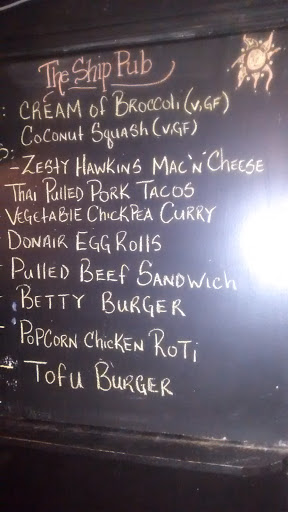 The Ship Pub
: CREAM of BROCCOLI (V,GF)
COCONUT SQUASH (V,GF)
S:
- ZESTY HAWKINS MAC 'N' CHEESE
THAI PULLED PORK TACOS
VEGETABLE CHICKPEA CURRY
DONAIR EGG ROLLS
PULLED BEEF SANDWICH
- BETTY BURGER
- POPCORN CHICKEN ROTI
- TOFU BURGER